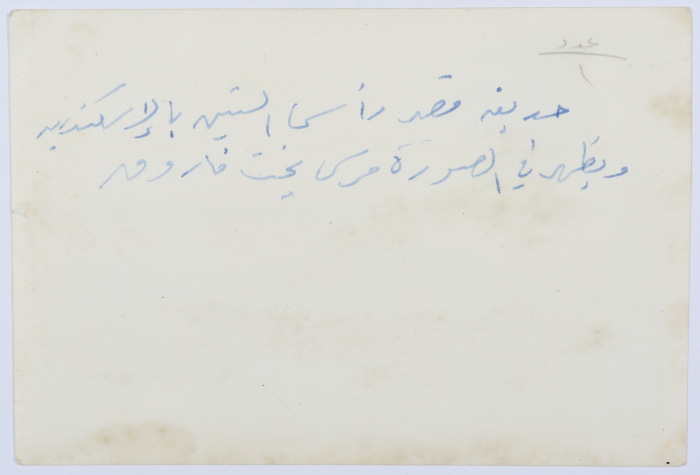 عدد
١
حديقة قصر رأس التين بالإسكندرية
ويظهر في الصورة مرسى يخت فاروق